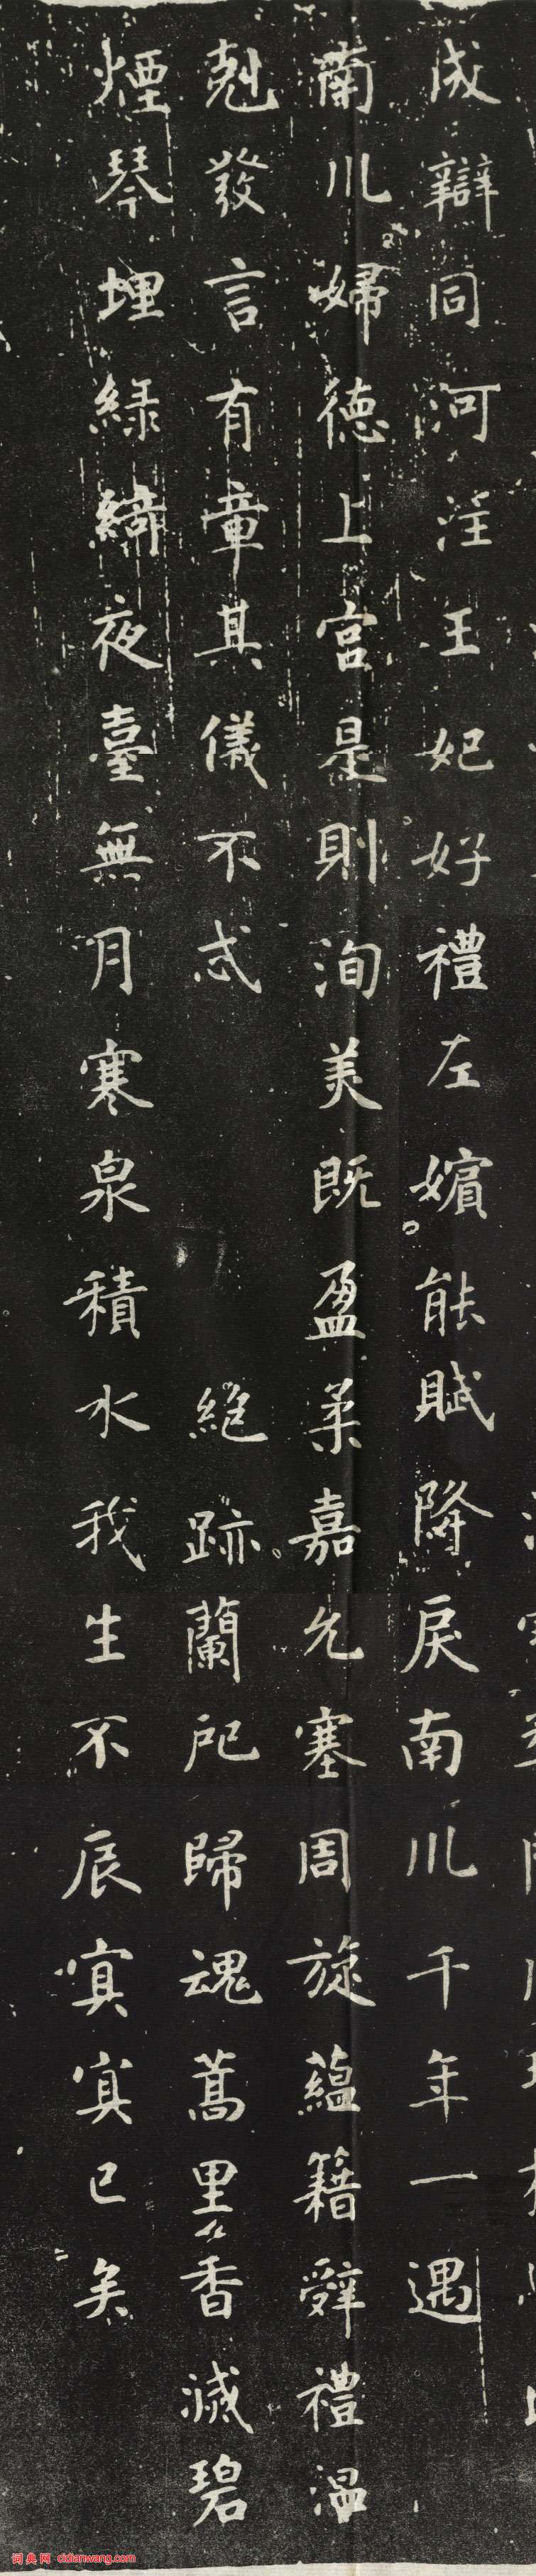 成辯同河淫王妃好禮左嬪能賦降戾南川千年一遇
南川婦德上宮是則洵美既盈柔嘉允塞周旋蘊籍辭禮溫
尅發言有章其儀不忒 絕跡蘭戺歸魂蒿里香滅碧
煙琴埋綠綺夜臺無月寒泉積水我生不辰冥冥已矣
词典网 cidianwang.com